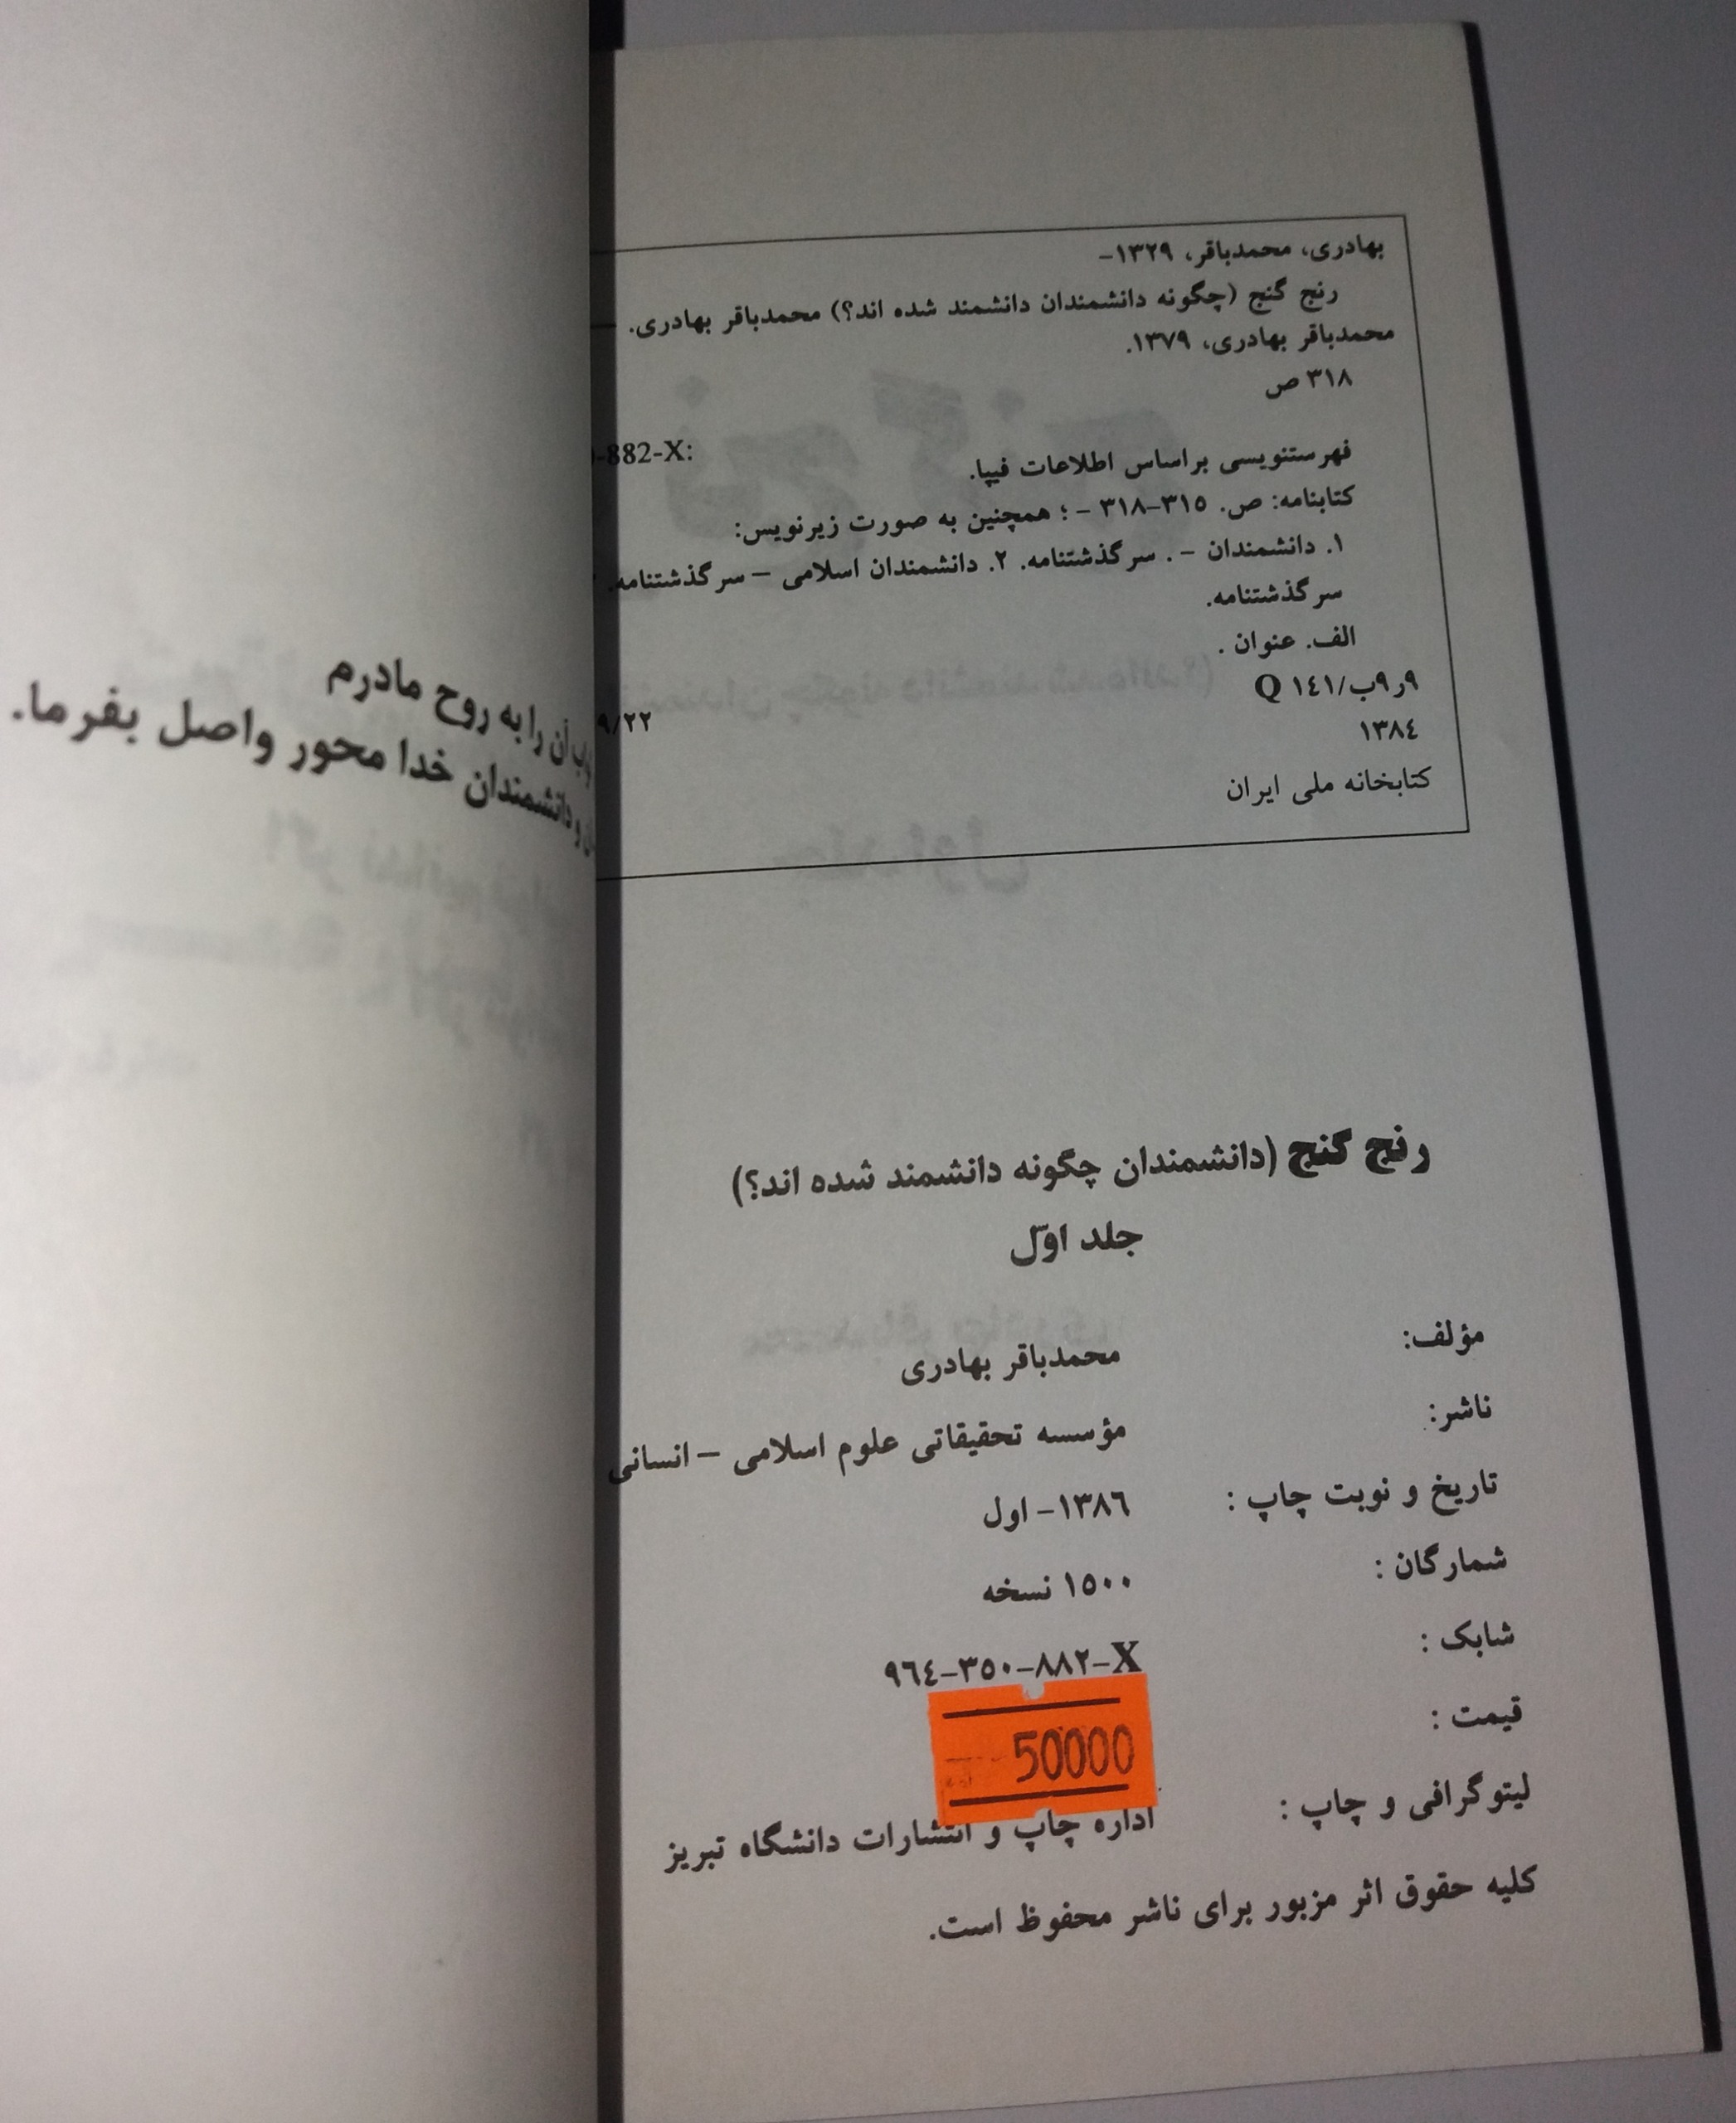 بهادری، محمدباقر، ۱۳۲۹-
رنج گنج (چگونه دانشمندان دانشمند شده اند؟) محمدباقر بهادری. —
محمدباقر بهادری، ۱۳۷۹.
۳۱۸ ص
882-X:
فهرستنویسی براساس اطلاعات فیپا.
کتابنامه: ص. ۳۱۵-۳۱۸ - ؛ همچنین به صورت زیرنویس:
۱. دانشمندان - . سرگذشتنامه. ۲. دانشمندان اسلامی – سرگذشتنامه.
سرگذشتنامه.
الف. عنوان .
۹ر۹ب/۱٤۱ Q
۹/۲۲
۱۳۸٤
کتابخانه ملی ایران
رنج گنج (دانشمندان چگونه دانشمند شده اند؟)
جلد اوّل
مؤلف: محمدباقر بهادری
ناشر: مؤسسه تحقیقاتی علوم اسلامی – انسانی
تاریخ و نوبت چاپ : ۱۳۸٦- اول
شمارگان : ۱۵۰۰ نسخه
شابک : ۹٦٤-۳۵۰-۸۸۲-X
قیمت : 50000
لیتوگرافی و چاپ : اداره چاپ و انتشارات دانشگاه تبریز
کلیه حقوق اثر مزبور برای ناشر محفوظ است.
آن را به روح مادرم
و دانشمندان خدا محور واصل بفرما.